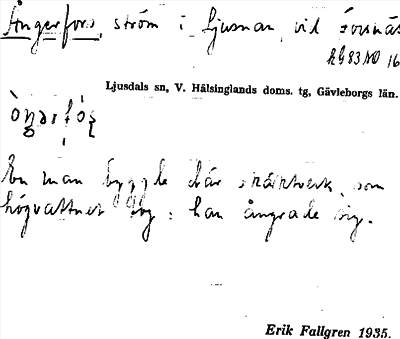 Ångerfors, ström i Ljusnan, vid Forsnäs
RG83NO 16
Ljusdals sn, V. Hälsinglands doms. tg, Gävleborgs län.
En man byggde där skäktverk, som
högvattnet tog: han ångrade sig.
Erik Fallgren 1935.